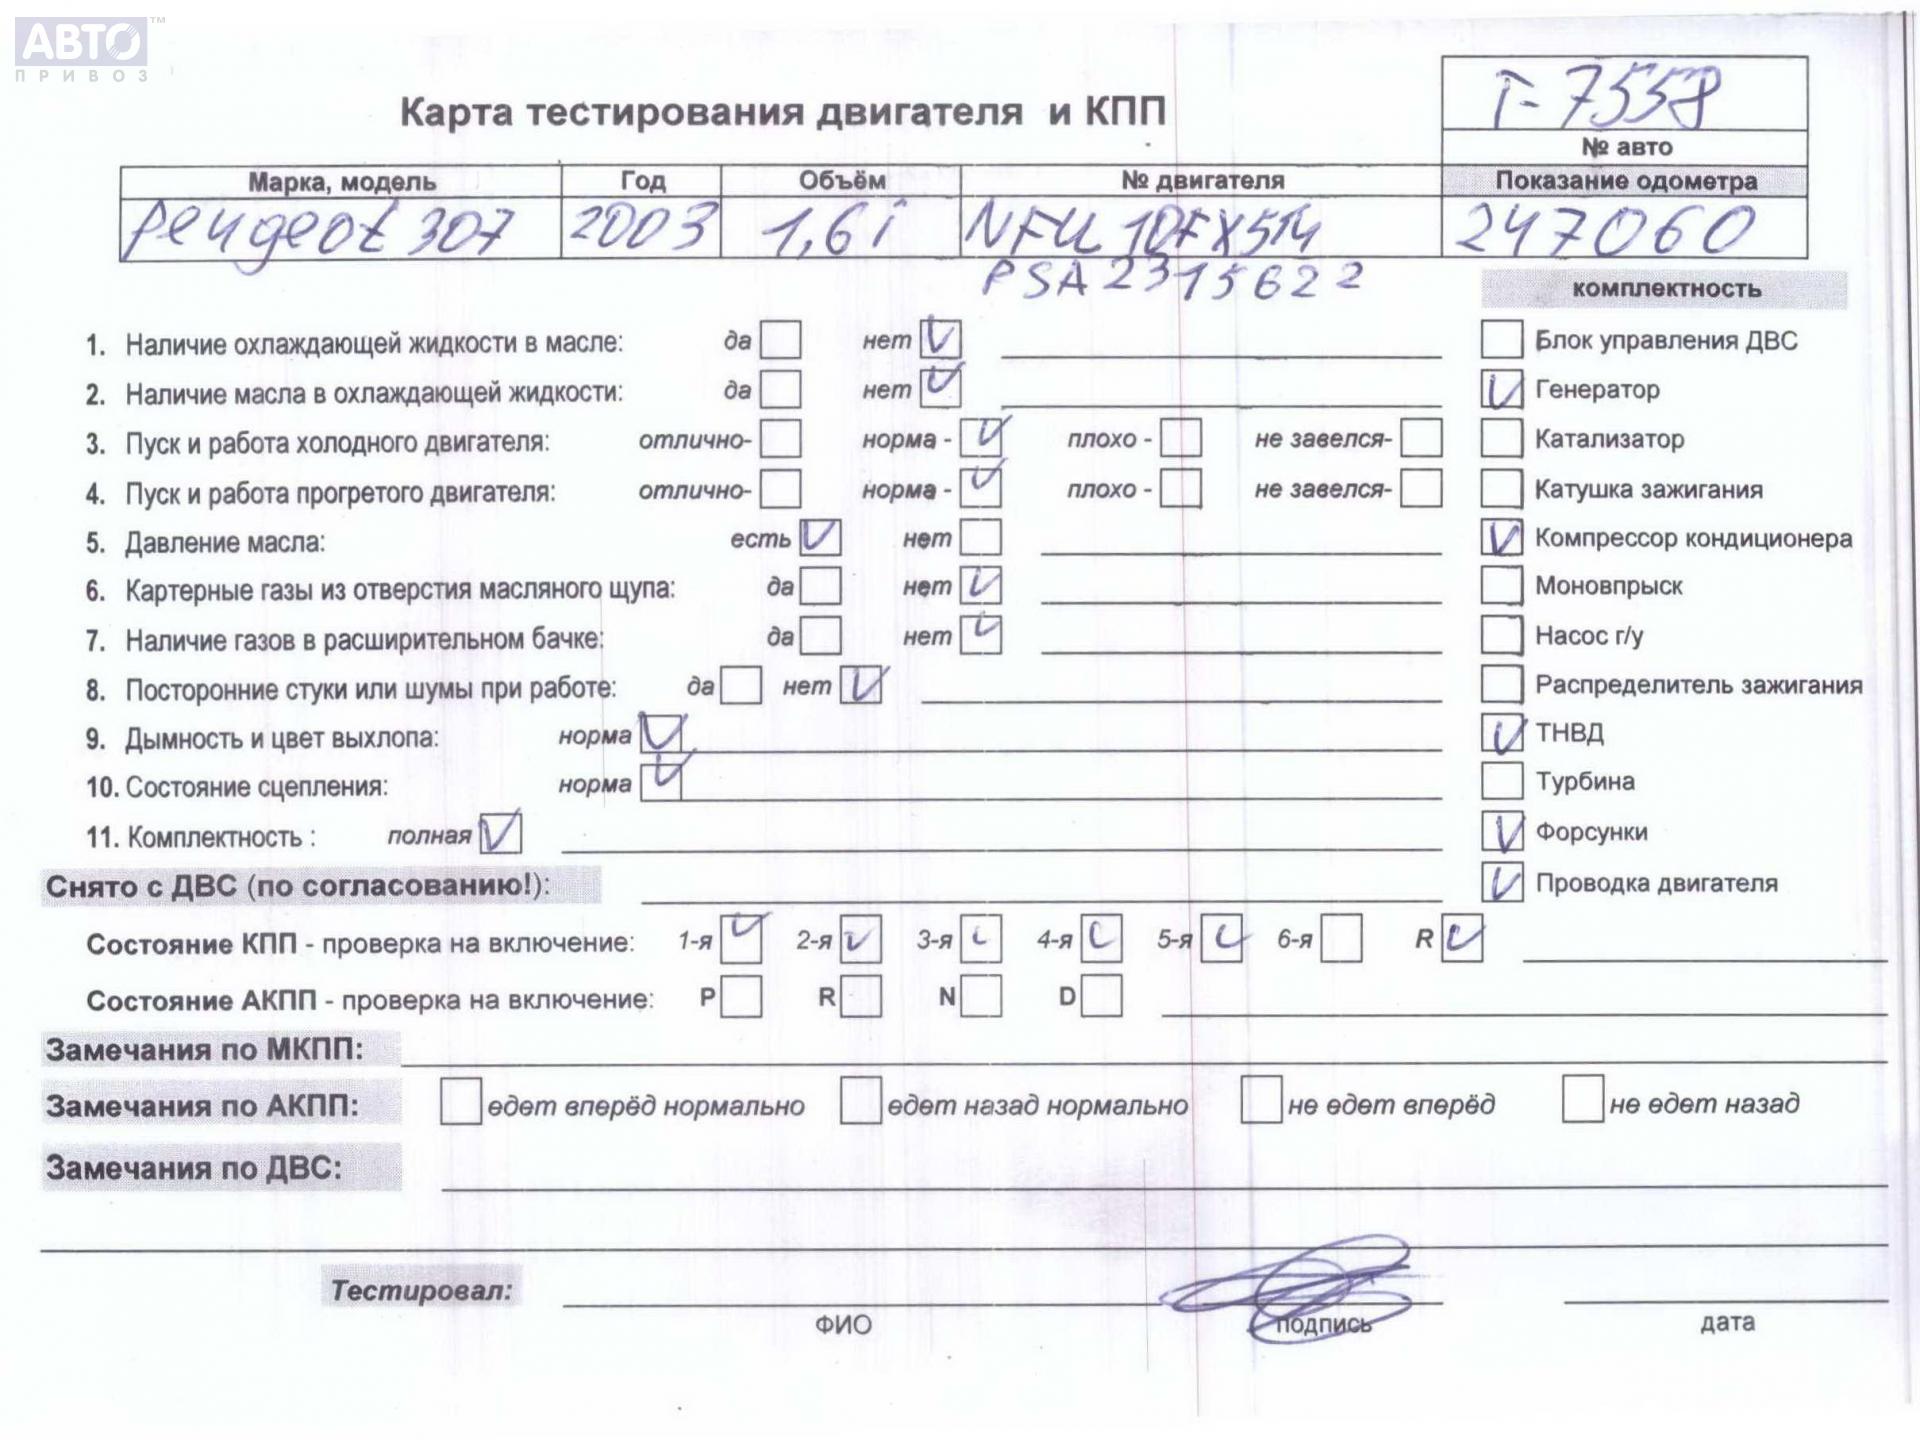 АВТО™
ПРИВОЗ
Карта тестирования двигателя и КПП
Т-7558
№ авто
Марка, модель Год Объём № двигателя Показание одометра
Peugeot 307 2003 1,6i NFU 10FX514 247060
PSA2315622
комплектность
1. Наличие охлаждающей жидкости в масле: да нет V Блок управления ДВС
2. Наличие масла в охлаждающей жидкости: да нет V V Генератор
3. Пуск и работа холодного двигателя: отлично- норма - V плохо - не завелся- Катализатор
4. Пуск и работа прогретого двигателя: отлично- норма - V плохо - не завелся- Катушка зажигания
5. Давление масла: есть V нет V Компрессор кондиционера
6. Картерные газы из отверстия масляного щупа: да нет V Моновпрыск
7. Наличие газов в расширительном бачке: да нет V Насос г/у
8. Посторонние стуки или шумы при работе: да нет V Распределитель зажигания
9. Дымность и цвет выхлопа: норма V V ТНВД
10. Состояние сцепления: норма V Турбина
11. Комплектность : полная V V Форсунки
Снято с ДВС (по согласованию!): V Проводка двигателя
Состояние КПП - проверка на включение: 1-я V 2-я V 3-я V 4-я V 5-я V 6-я R V
Состояние АКПП - проверка на включение: P R N D
Замечания по МКПП:
Замечания по АКПП: едет вперёд нормально едет назад нормально не едет вперёд не едет назад
Замечания по ДВС:
Тестировал:
ФИО подпись дата